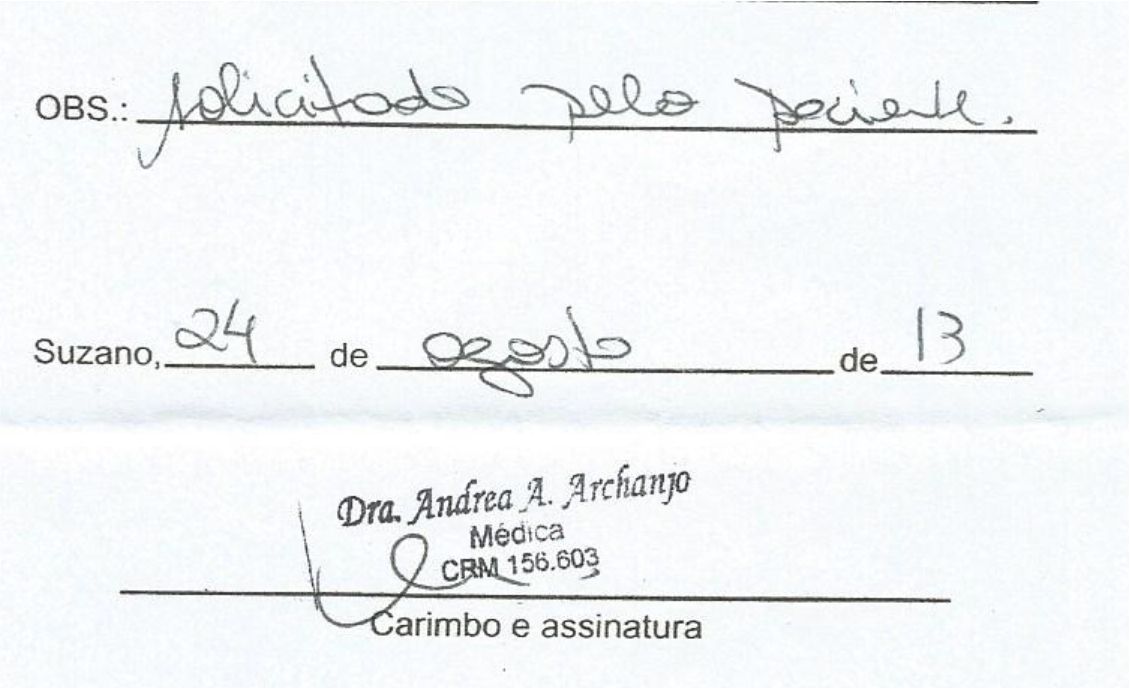 OBS.: solicitado pelo paciente.
Suzano, 24 de agosto de 13
Dra. Andrea A. Archanjo
Médica
CRM 156.603
Carimbo e assinatura